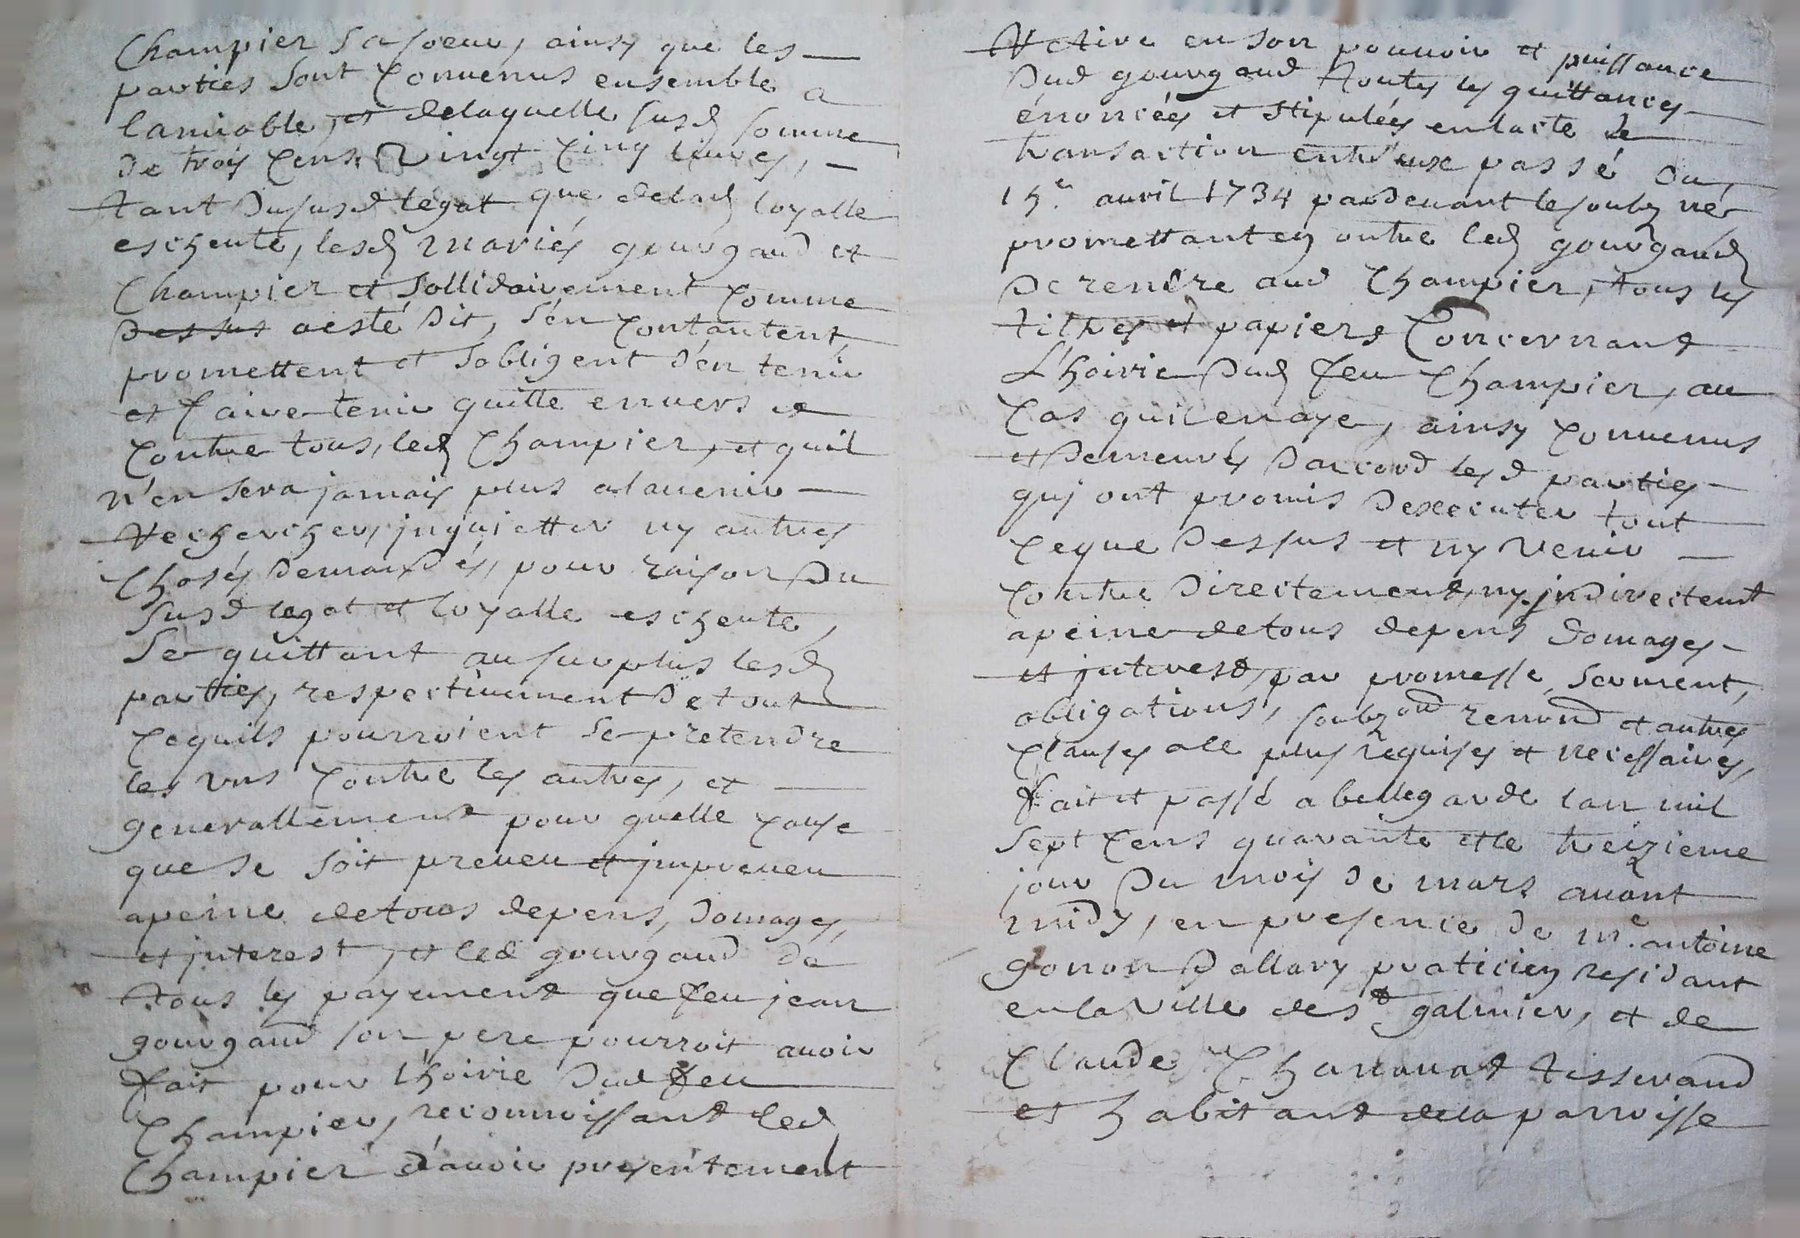 Champier sa soeur, ainsy que les
parties sont convenus ensemble a
lamiable, et delaquelle susd somme
de trois cens vingt cinq livres,
tant dususd légat que delad loyalle
escheute, lesd mariés gourgaud et
Champier et sollidairement comme
dessus aesté dit, s'én contantent,
promettent et sobligent d'én tenir
et faire tenir quitte envers et
contre tous, led Champier, et quil
n'en sera jamais plus alavenir
rechercher, jnquietter ny autres
choses demandés, pour raison du
susd legat et loyalle escheute,
se quittant au surplus lesd
parties, respectivement de tout
cequils pourroient se prétendre
les uns contre les autres, et
generallement pour quelle cause
que se soit preveu et jmpreveu
apeine detous depens, domages,
et jnterest, et led gourgaud de
tous les payement que feu jean
gourgaud son pere pourroit avoir
fait pour l'hoirie dud feu
Champier, reconnoissant led
Champier d'avoir presentement
retire en son pouvoir et puissance
dud gourgaud toutes les quittances
énoncées et stipulées enlacte de
transaction entr'eux passé du
15e avril 1734 pardevant le soubz né
promettant en outre led gourgaud
de rendre aud Champier, tous les
titres et papiers concernant
L'hoirie dud feu Champier, au
cas quil enaye, ainsy convenus
et demeurés d'accord lesd parties
quj ont promis dexecuter tout
ceque dessus et ny venir
contre directement, ny jndirectemt
apeine detous depens domages
et jnterest, par promesse, serment,
obligations, soubzon renond et autres
clauses all plus requises et necessaires,
fait et passé a bellegarde lan mil
sept cens quarante et le treizieme
jour du mois de mars avant
midy, en presence de me antoine
gonon dallary praticien residant
en la ville de st galmier, et de
Claude Chanavat tisserand
et habitant dela parroisse